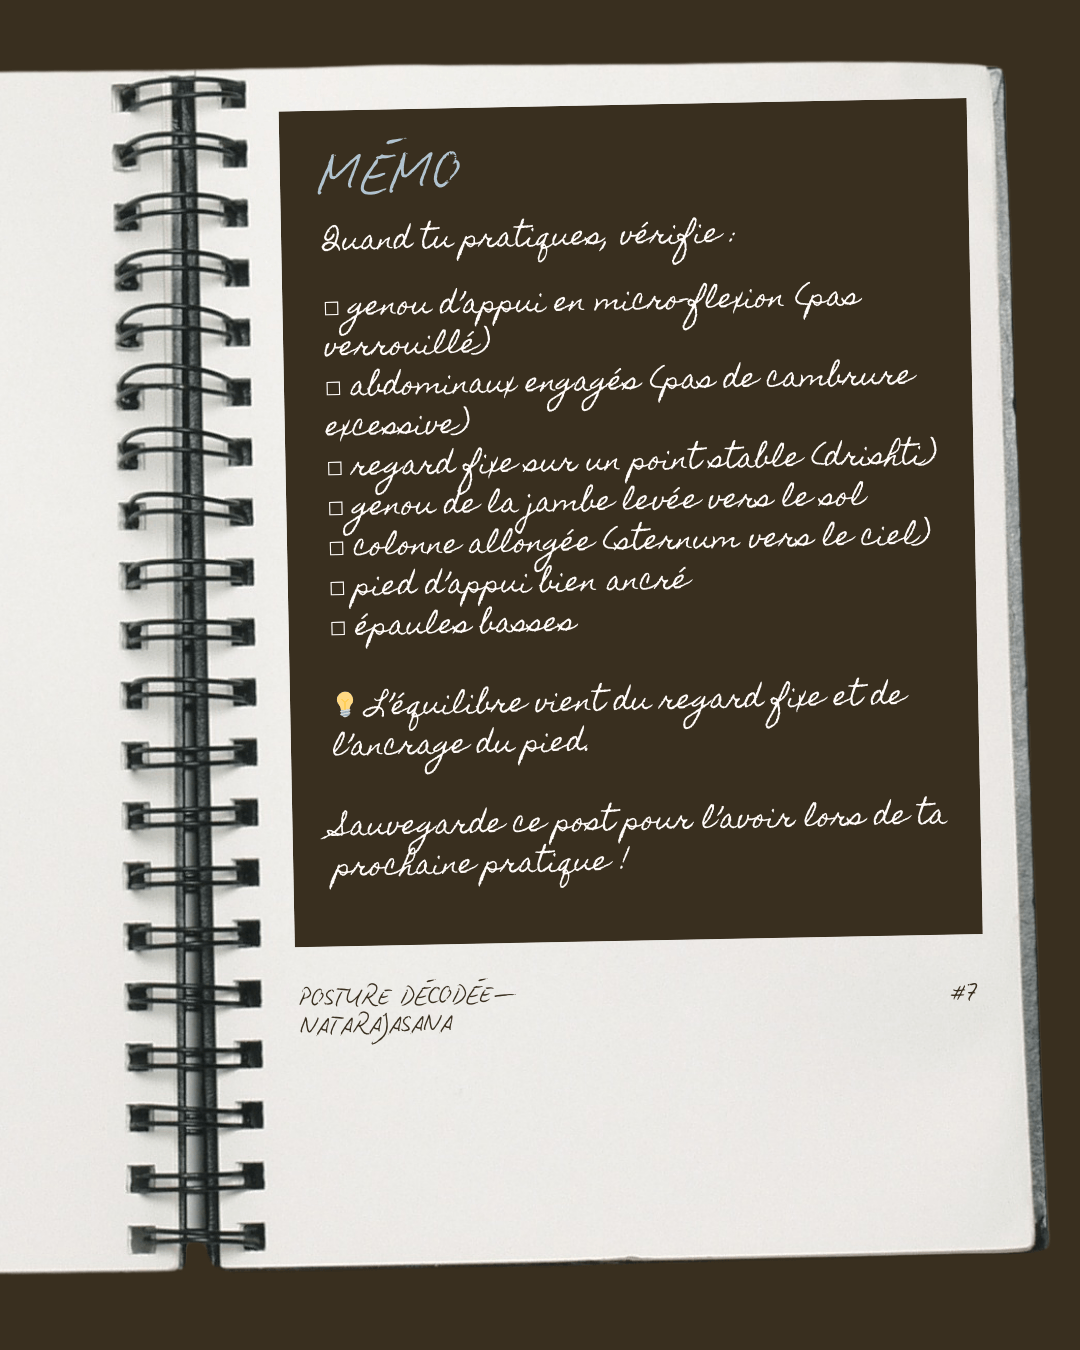 MÉMO
Quand tu pratiques, vérifie :
□ genou d'appui en micro-flexion (pas
verrouillé)
□ abdominaux engagés (pas de cambrure
excessive)
□ regard fixe sur un point stable (drishti)
□ genou de la jambe levée vers le sol
□ colonne allongée (sternum vers le ciel)
□ pied d'appui bien ancré
□ épaules basses
💡 L'équilibre vient du regard fixe et de
l'ancrage du pied.
Sauvegarde ce post pour l'avoir lors de ta
prochaine pratique !
POSTURE DÉCODÉE—
NATARAJASANA
#7